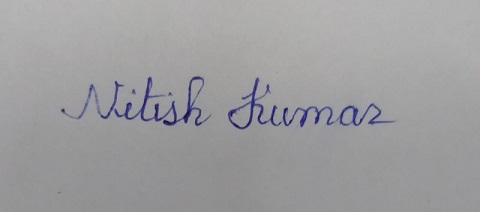 Nitish Kumar